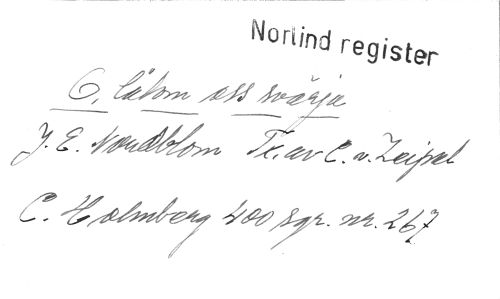 Norlind register
O, låtom oss svärja
J. E. Nordblom Tx. av C. v. Zeipel
C. Holmberg 400 sgr. nr. 267